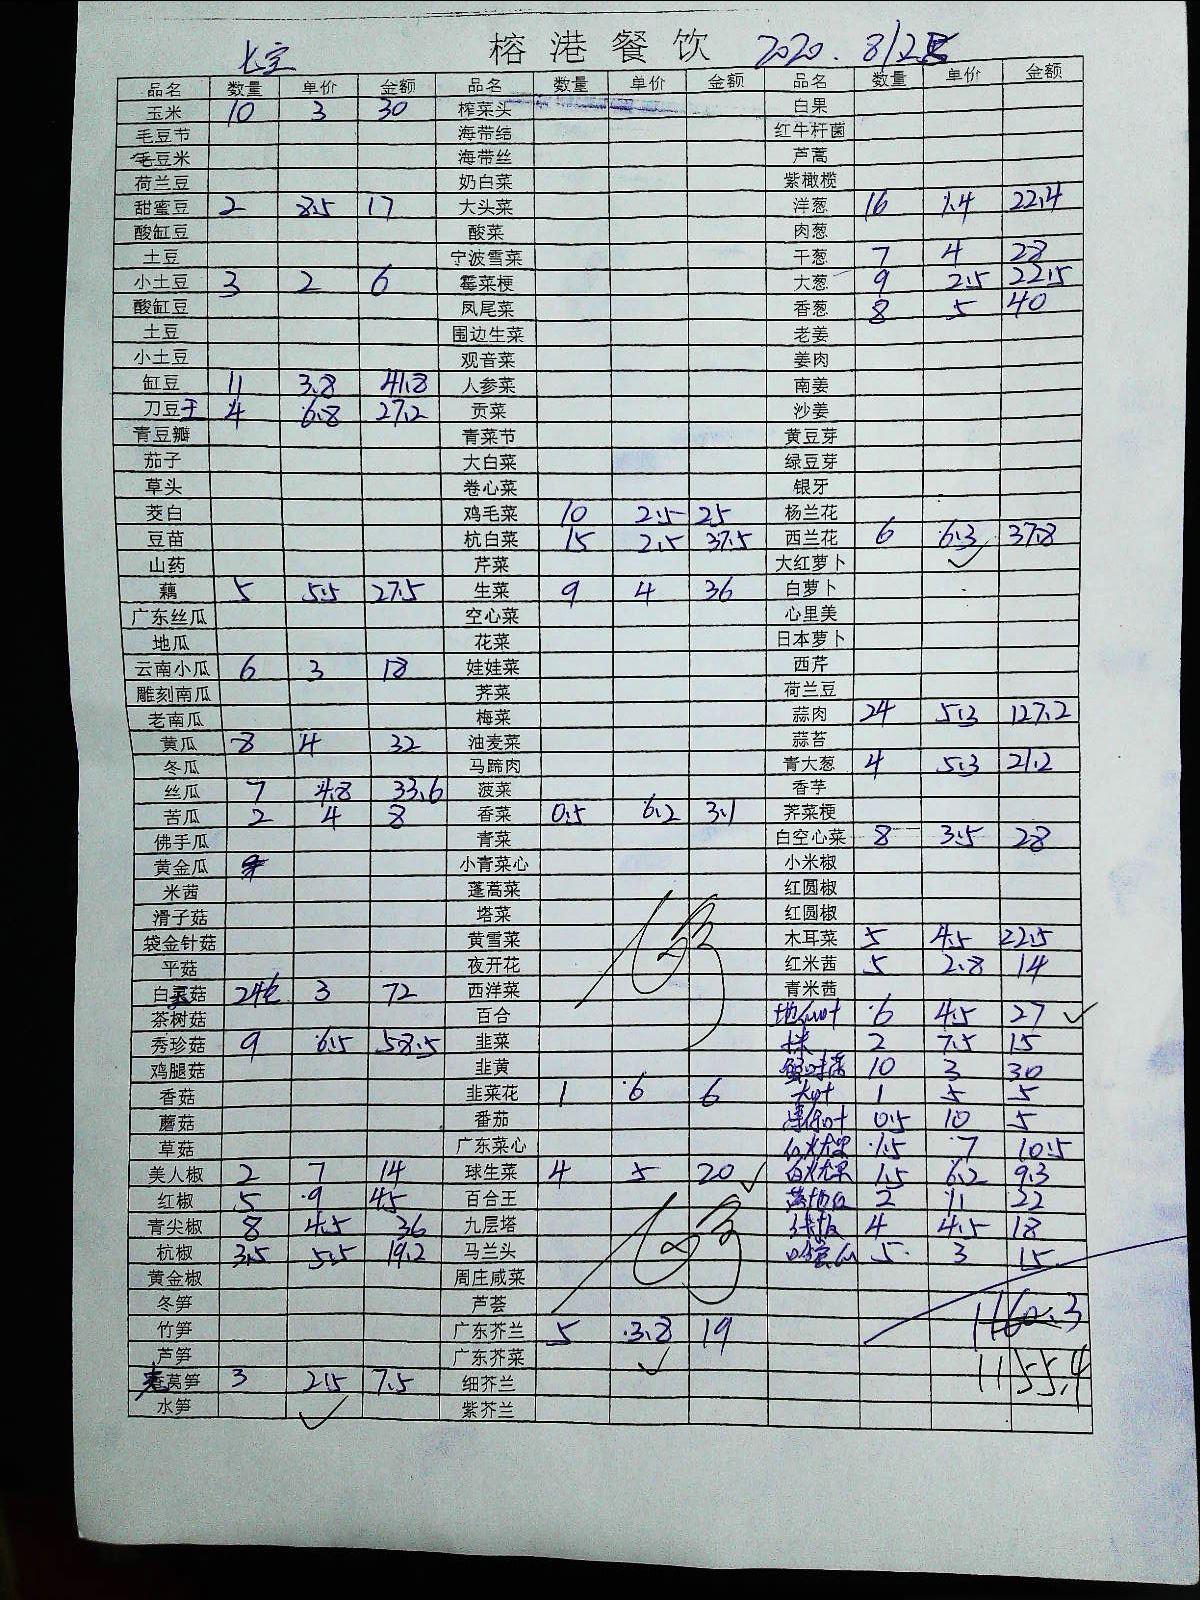 榕港餐饮 2020.8/25
品名 数量 单价 金额 品名 数量 单价 金额 品名 数量 单价 金额
玉米 10 3 30 榨菜头 白果
毛豆节 海带结 红牛杆菌
毛豆米 海带丝 芦蒿
荷兰豆 奶白菜 紫橄榄
甜蜜豆 2 8.5 17 大头菜 洋葱 16 1.4 22.4
酸缸豆 酸菜 肉葱
土豆 宁波雪菜 干葱 7 4 28
小土豆 3 2 6 霉菜梗 大葱 9 2.5 22.5
酸缸豆 凤尾菜 香葱 8 5 40
土豆 围边生菜 老姜
小土豆 观音菜 姜肉
缸豆 11 3.8 41.8 人参菜 南姜
刀豆王 4 6.8 27.2 贡菜 沙姜
青豆瓣 青菜节 黄豆芽
茄子 大白菜 绿豆芽
草头 卷心菜 银牙
茭白 鸡毛菜 10 2.5 25 杨兰花
豆苗 杭白菜 15 2.5 37.5 西兰花 6 6.3 37.8
山药 芹菜 大红萝卜
藕 5 5.5 27.5 生菜 9 4 36 白萝卜
广东丝瓜 空心菜 心里美
地瓜 花菜 日本萝卜
云南小瓜 6 3 18 娃娃菜 西芹
雕刻南瓜 荠菜 荷兰豆
老南瓜 梅菜 蒜肉 24 5.3 127.2
黄瓜 8 4 32 油麦菜 蒜苔
冬瓜 马蹄肉 青大葱 4 5.3 21.2
丝瓜 7 4.8 33.6 菠菜 香芋
苦瓜 2 4 8 香菜 0.5 6.2 3.1 荠菜梗
佛手瓜 青菜 白空心菜 8 3.5 28
黄金瓜 小青菜心 小米椒
米茜 蓬蒿菜 红圆椒
滑子菇 塔菜 红圆椒
袋金针菇 黄雪菜 木耳菜 5 4.5 22.5
平菇 夜开花 红米茜 5 2.8 14
白灵菇 24包 3 72 西洋菜 青米茜
茶树菇 百合 6 4.5 27
秀珍菇 9 6.5 58.5 韭菜 2 7.5 15
鸡腿菇 韭黄 10 3 30
香菇 韭菜花 1 6 6 1 5 5
蘑菇 番茄 0.5 10 5
草菇 广东菜心 1.5 7 10.5
美人椒 2 7 14 球生菜 4 5 20 1.5 6.2 9.3
红椒 5 9 45 百合王 2 11 22
青尖椒 8 4.5 36 九层塔 4 4.5 18
杭椒 3.5 5.5 19.2 马兰头 5 3 15
黄金椒 周庄咸菜
冬笋 芦荟 1160.3
竹笋 广东芥兰 5 3.8 19
芦笋 广东芥菜 1155.4
莴笋 3 2.5 7.5 细芥兰
水笋 紫芥兰